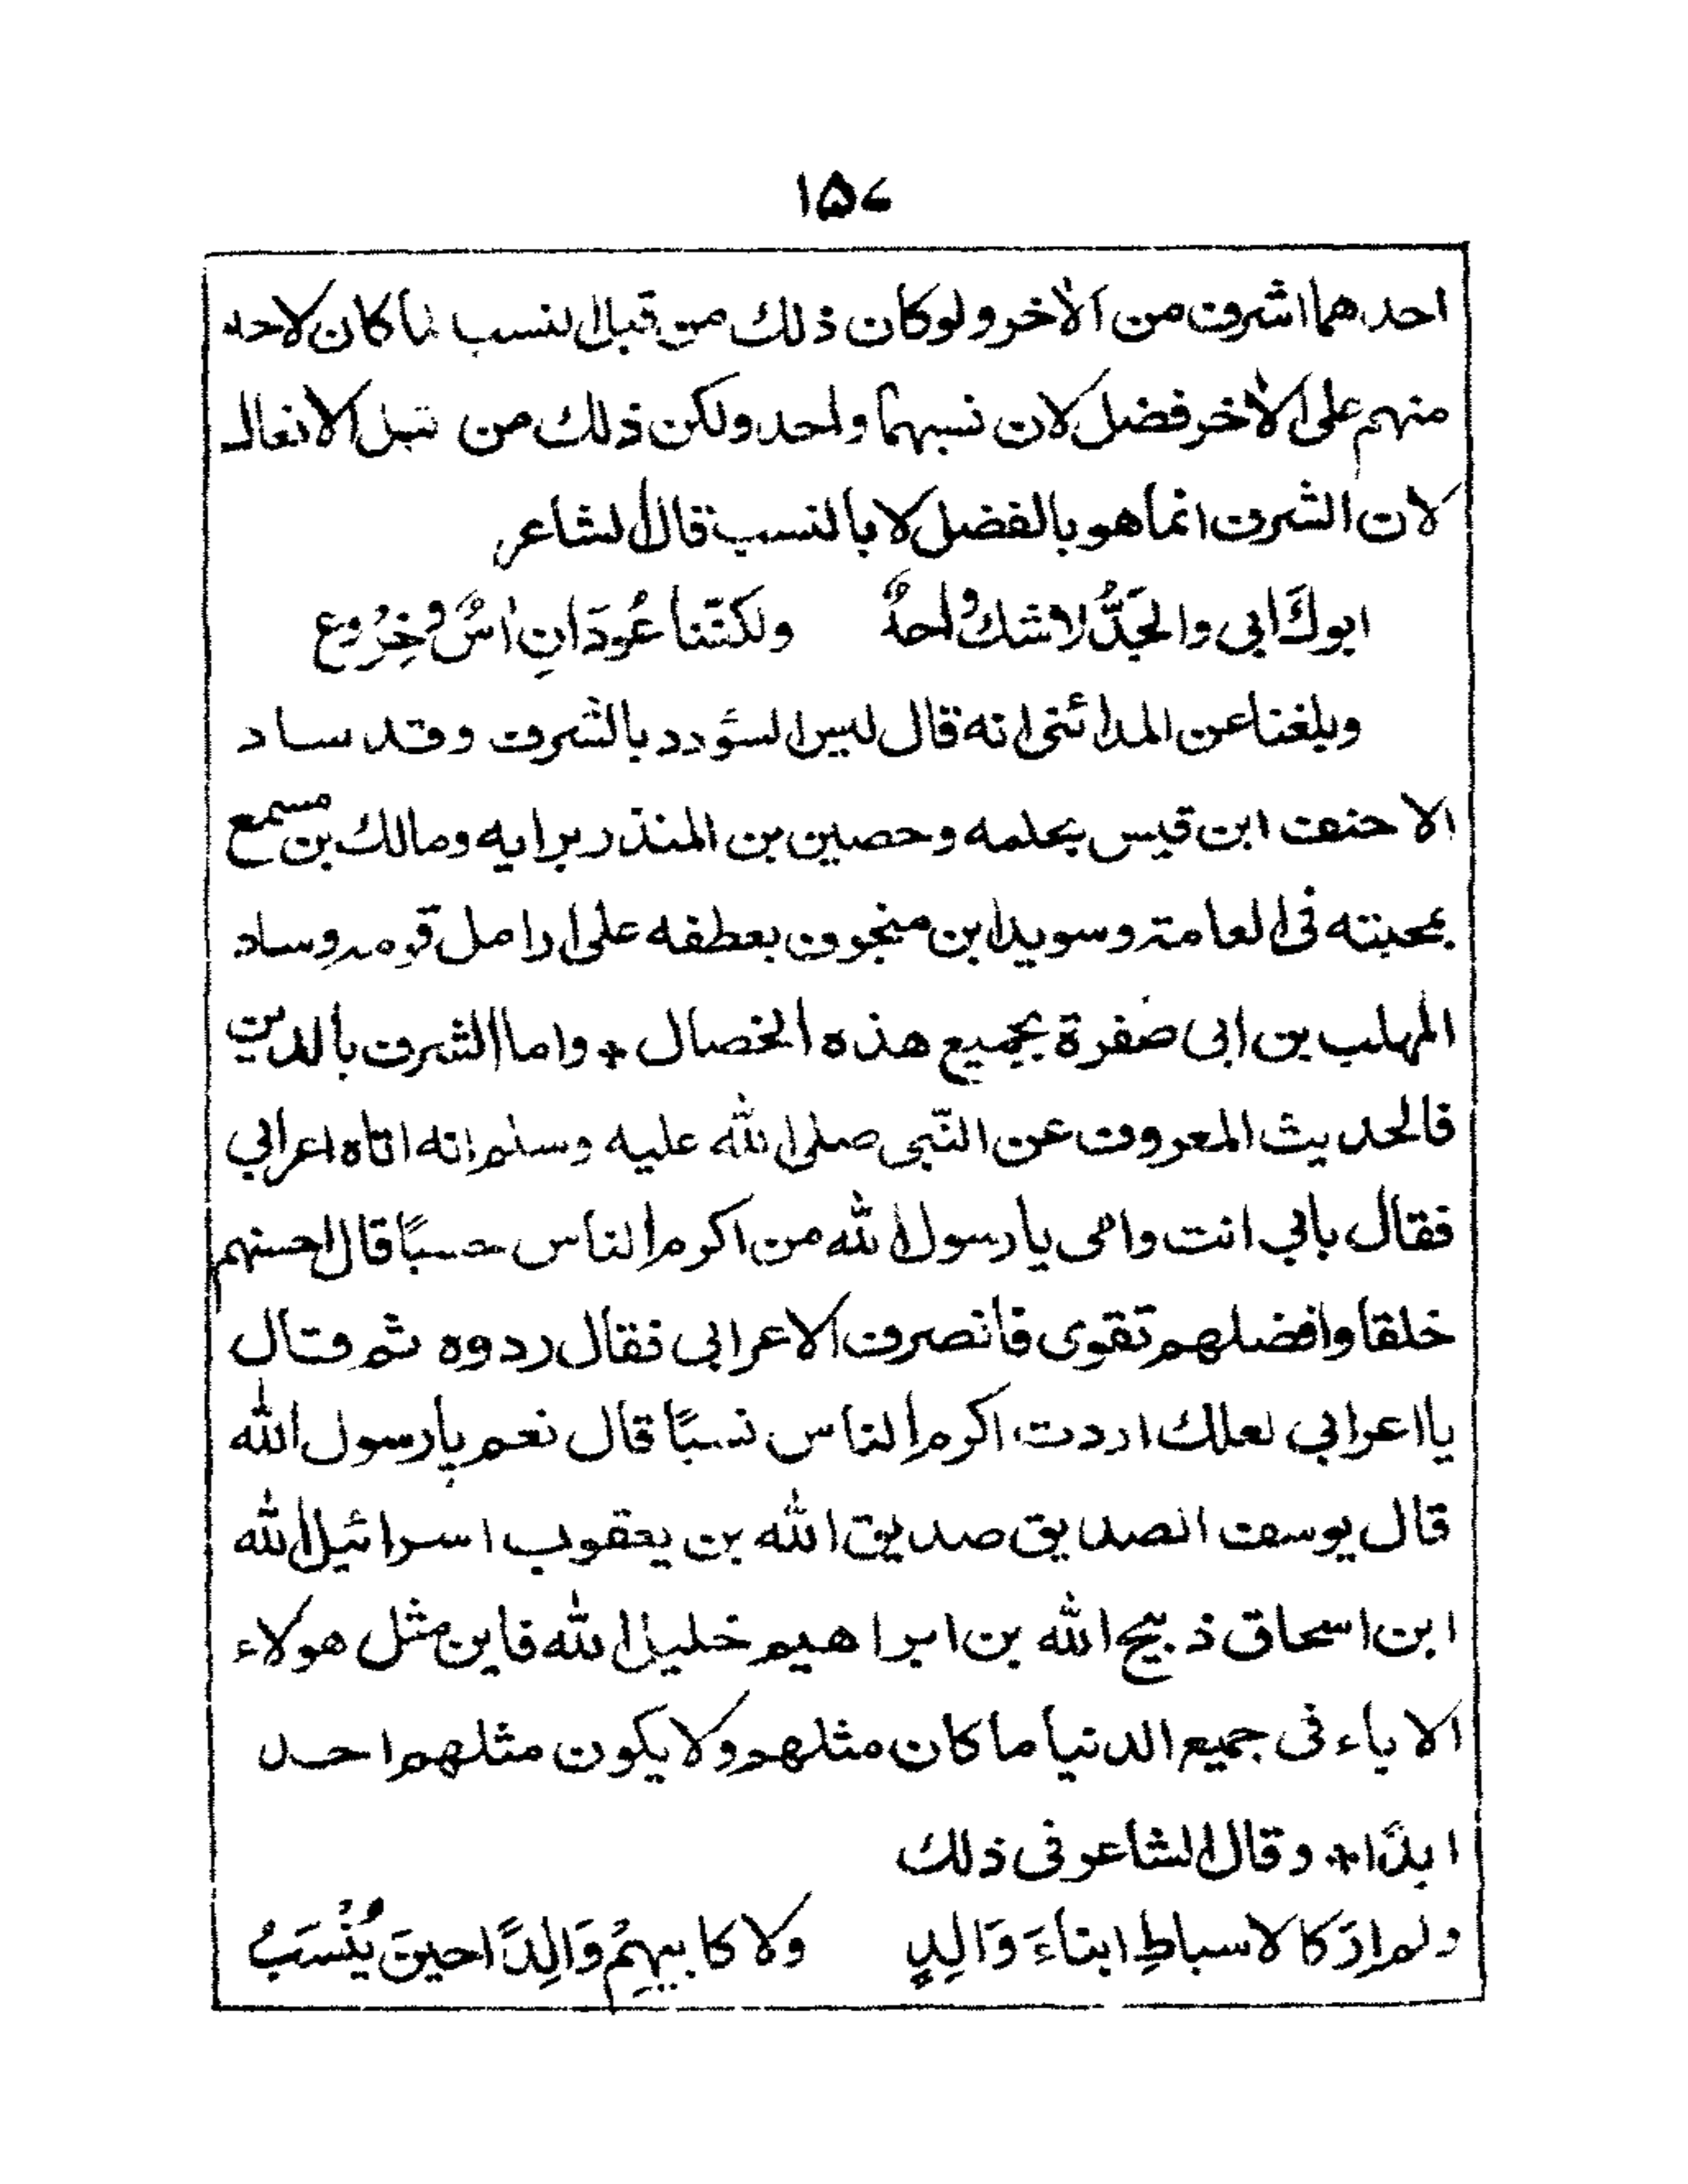 ۱۵۷
احدهما اشرف من الآخر ولو كان ذلك من قبل النسب لما كان لاحد
منهم على الآخر فضل لان نسبهما واحد ولكن ذلك من قبل الافعال
لان الشرف انما هو بالفضل لا بالنسب قال الشاعر
ابوكَ ابى والجَدُّ لا شك واحدٌ ولكنّنا عُودَانِ اٰسٌ وخِرُوع
وبلغنا عن المدائنى انه قال ليس السؤدد بالشرف وقد ساد
الاحنف ابن قيس بحلمه وحصين بن المنذر برايه ومالك بن مسمع
بمحبته فى العامة وسويد ابن منجوف بعطفه على ارامل قومه وساد
المهلب بن ابى صفرة بجميع هذه الخصال + واما الشرف بالدين
فالحديث المعروف عن النّبى صلى الله عليه وسلم انه اتاه اعرابي
فقال بابي انت وامى يا رسول الله من اكرم الناس حسبًا قال احسنهم
خلقا وافضلهم تقوى فانصرف الاعرابى فقال ردوه ثم قال
يا اعرابي لعلك اردت اكرم الناس نسبًا قال نعم يا رسول الله
قال يوسف الصديق صديق الله بن يعقوب اسرائيل الله
ابن اسحاق ذبيح الله بن ابراهيم خليل الله فاين مثل هولاء
الاباء فى جميع الدنيا ما كان مثلهم ولا يكون مثلهم احد
ابدًا + وقال الشاعر فى ذلك
ولم ارَ كالاسباطِ ابناءَ وَالِدٍ ولا كابيهِمْ وَالِدًا حينَ يُنْسَبُ